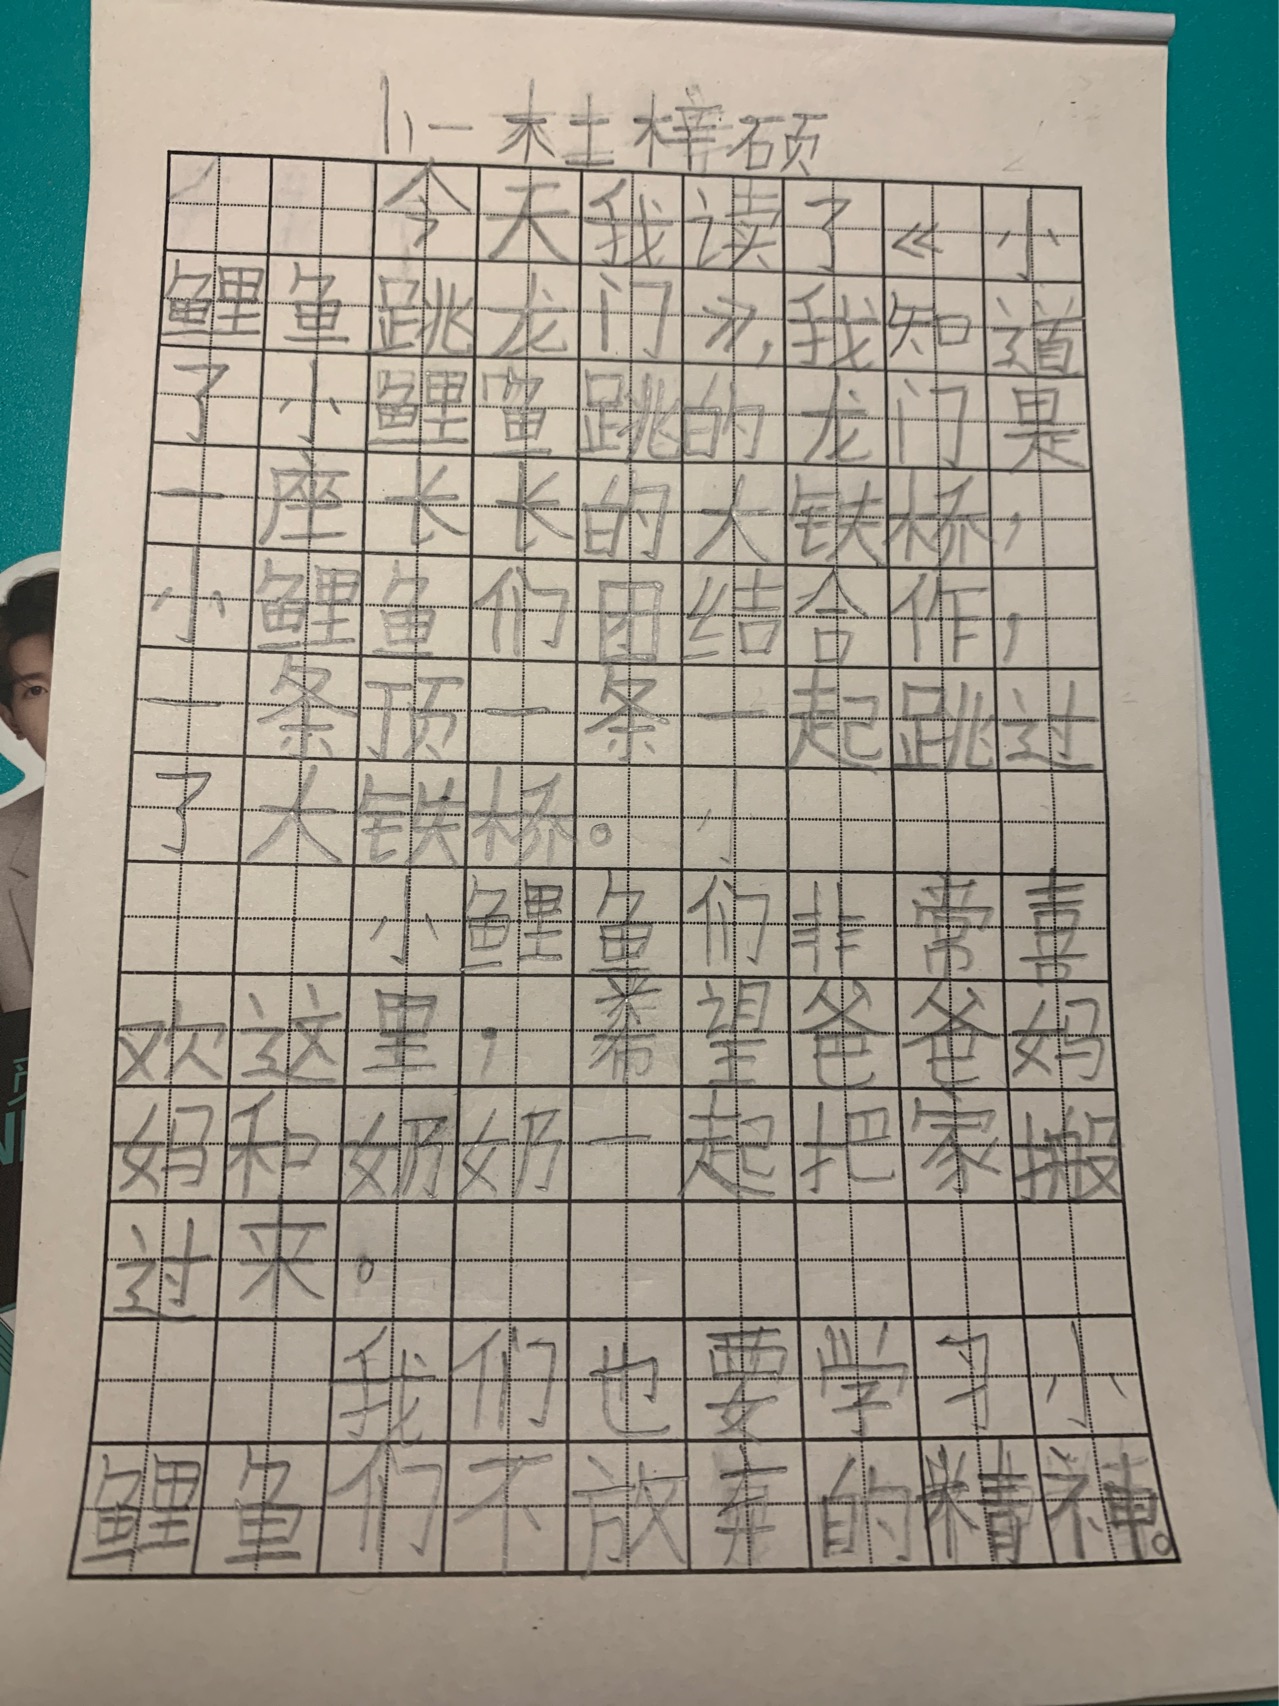 今天我读了《小
鲤鱼跳龙门》,我知道
了小鲤鱼跳的龙门是
一座长长的大铁桥,
小鲤鱼们团结合作,
一条顶一条一起跳过
了大铁桥。小
小鲤鱼们非常喜
欢这里,希望爸爸妈
妈和奶奶一起把家搬
过来。
我们也要学习小
鲤鱼们不放弃的精神。